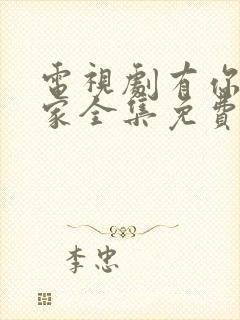 電視劇有你
家全集免費
李忠